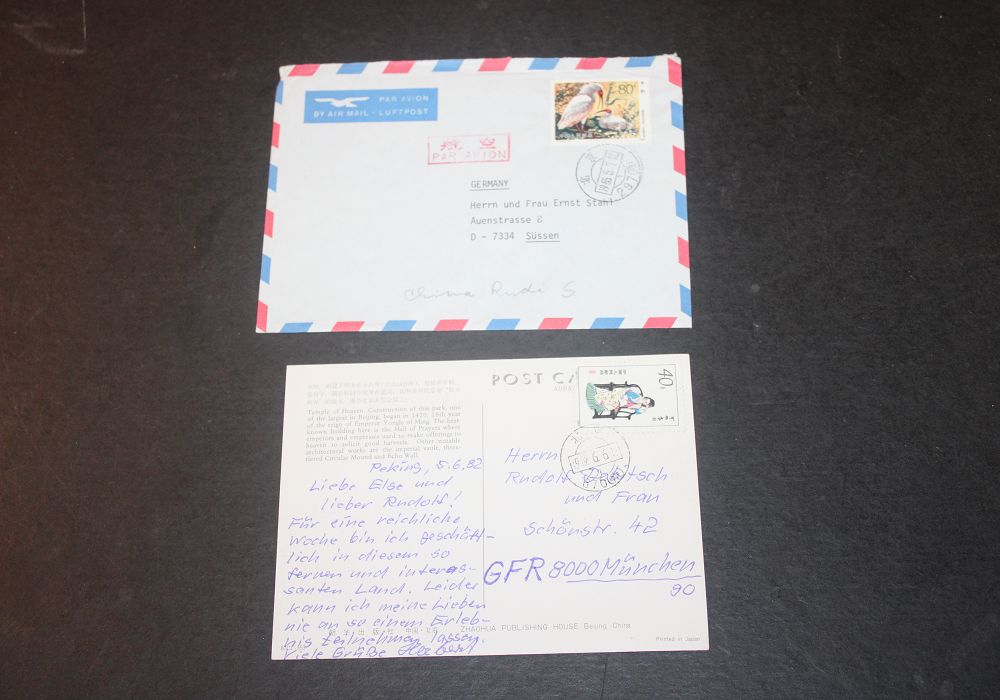 PAR AVION
BY AIR MAIL - LUFTPOST
80
航空
PAR AVION
GERMANY
Herrn und Frau Ernst Stahl
Auenstrasse 8
D - 7334 Süssen
China Rudi S
POST
40
Temple of Heaven. Construction of this park, one
of the largest in Beijing, began in 1420, 18th year
of the reign of Emperor Yongle of Ming. The best-
known building here is the Hall of Prayers where
emperors and empresses used to make offerings to
heaven to solicit good harvests. Other notable
architectural works are the imperial vault, three-
tiered Circular Mound and Echo Wall.
Peking, 5.6.82
Liebe Else und
lieber Rudolf!
Für eine reichliche
Woche bin ich geschäft-
lich in diesem so
fernen und interes-
santen Land. Leider
kann ich meine Lieben
nie an so einem Erleb-
nis teilnehmen lassen.
Viele Grüße
Herrn
Rudolf
und Frau
Schönstr. 42
GFR 8000 München
90
ZHAOHUA PUBLISHING HOUSE Beijing, China
Printed in Japan